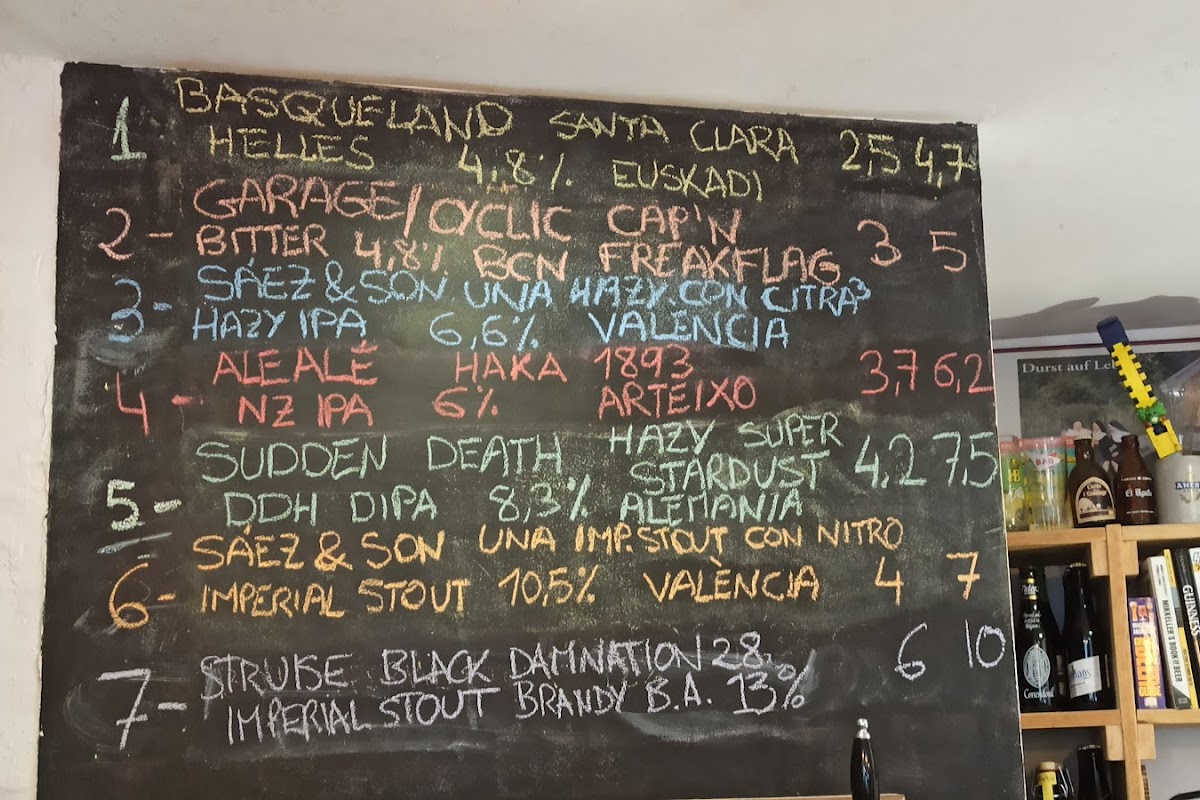 1 BASQUELAND SANTA CLARA 2,5 4,7
HELLES 4,8% EUSKADI
2- GARAGE/CYCLIC CAP'N 3 5
BITTER 4,8% BCN FREAKFLAG
3- SÁEZ & SON UNA HAZY CON CITRA³
HAZY IPA 6,6% VALENCIA
4- ALEALÉ HAKA 1893 3,7 6,2
NZ IPA 6% ARTEIXO
5- SUDDEN DEATH HAZY SUPER STARDUST 4,2 7,5
DDH DIPA 8,3% ALEMANIA
6- SÁEZ & SON UNA IMP. STOUT CON NITRO
IMPERIAL STOUT 10,5% VALÈNCIA 4 7
7- STRUISE BLACK DAMNATION 28 6 10
IMPERIAL STOUT BRANDY B.A. 13%
Durst auf Leb
GUINNESS
MIKKELLER'S BOOK OF BEER
Corsendonk